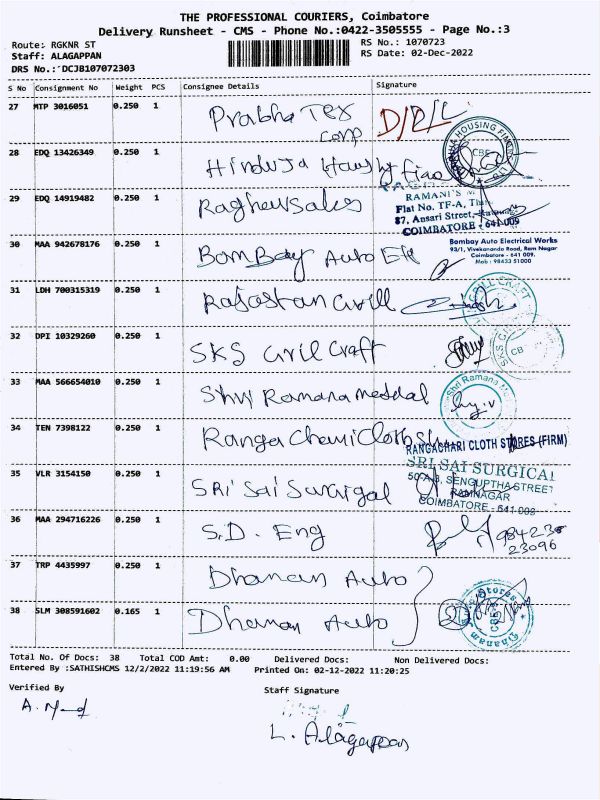 THE PROFESSIONAL COURIERS, Coimbatore
Delivery Runsheet - CMS - Phone No.:0422-3505555 - Page No.:3
Route: RGKNR ST
RS No.: 1070723
Staff: ALAGAPPAN
RS Date: 02-Dec-2022
DRS No.: DCJB107072303
S No Consignment No Weight PCS Consignee Details Signature
27 MTP 3016051 0.250 1 Prabha Tex
Corp
28 EDQ 13426349 0.250 1 Hinduja
HOUSING
CBE
29 EDQ 14919482 0.250 1
RAMANI'S
Flat No. TF-A,
87, Ansari Street,
COIMBATORE - 641 009
30 MAA 942678176 0.250 1 BomBay Auto
Bombay Auto Electrical Works
93/1, Vivekananda Road, Ram Nagar
Coimbatore - 641 009.
Mob : 98433 51000
31 LDH 700315319 0.250 1 Rajastan
CRAFT
32 DPI 10329260 0.250 1 SKS Civil Craft
SKS
CB
33 MAA 566654010 0.250 1 Shri Ramana
Shri Ramana
34 TEN 7398122 0.250 1 Ranga Chari Cloth
RANGACHARI CLOTH STORES (FIRM)
35 VLR 3154150 0.250 1 SRi Sai Surgigal
SRI SAI SURGICAL
50-A,B, SENGUPTHA STREET
RAMNAGAR
COIMBATORE - 641 009
36 MAA 294716226 0.250 1 S.D. Eng
23096
37 TRP 4435997 0.250 1 Dhanam Auto
38 SLM 308591602 0.165 1 Dhanam Auto
Stores
Dhanam
Total No. Of Docs: 38 Total COD Amt: 0.00 Delivered Docs: Non Delivered Docs:
Entered By :SATHISHCMS 12/2/2022 11:19:56 AM Printed On: 02-12-2022 11:20:25
Verified By
Staff Signature
L. Alagappan